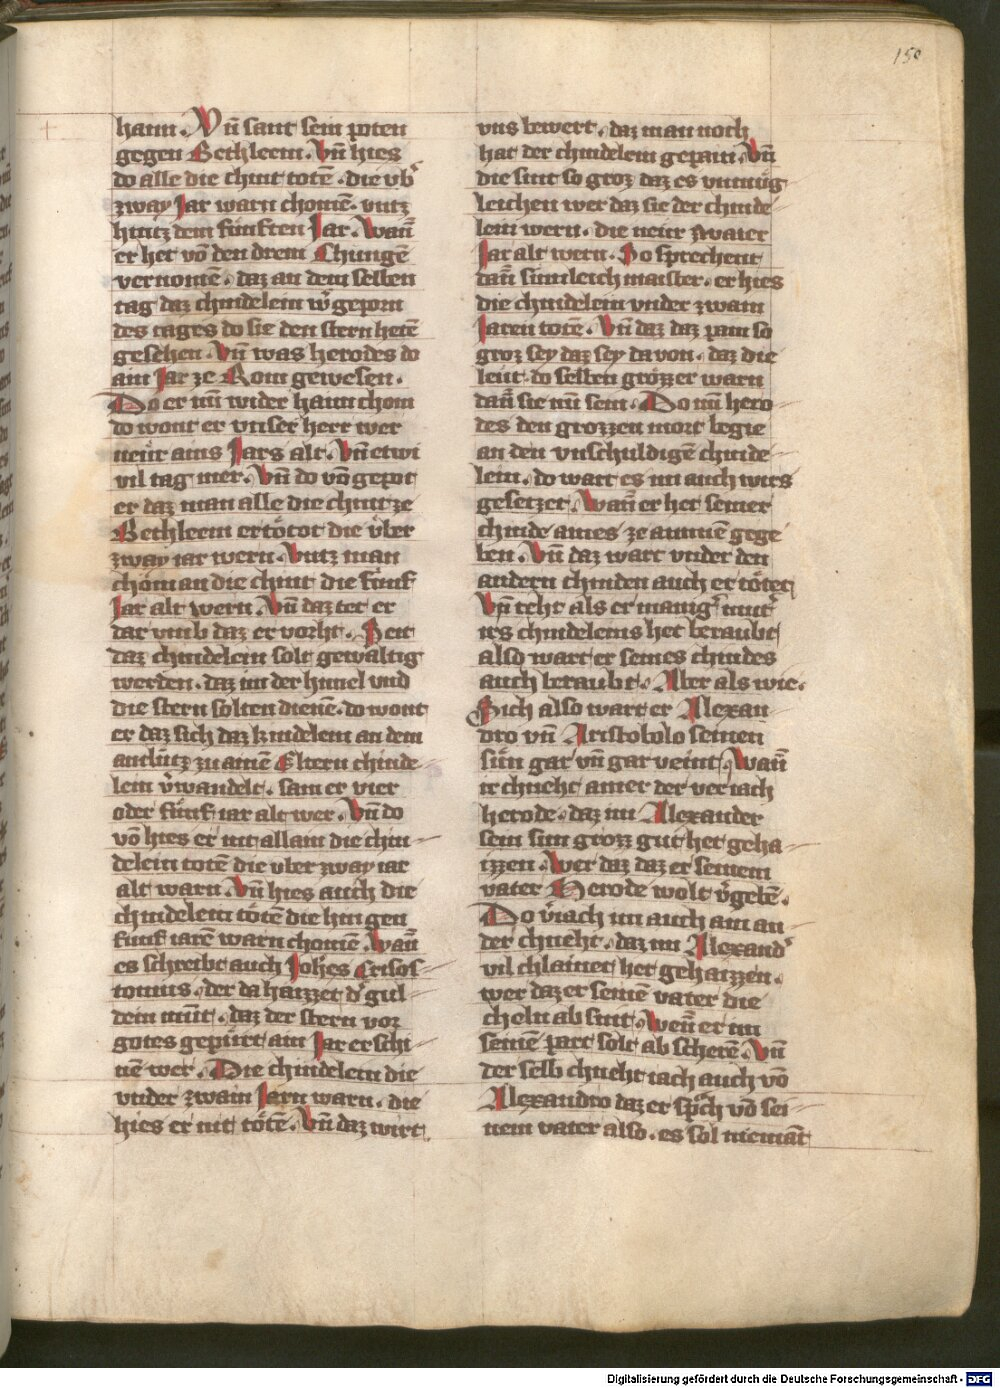 150
haim. Vñ sant sein poten
gegen Bethleem. Vñ hies
do alle die chint totē. die vb͛
zway Jar warn chomē. vntz
hintz dem fünften Jar. Wañ
er het vō den drein Chungē
vernomē. daz an dem selben
tag daz chindelein w͛ geporn
des tages do sie den stern hetē
gesehen. Vñ was herodes do
ain Jar ze Rom gewesen.
Do er nu wider haim chom
do wont er vnser herr wer
neur ains Jars alt. Vñ etwi
vil tag mer. Vñ do vō gepot
er daz man alle die chint ze
Bethleem ertötot die vber
zway iar wern. Vntz man
chöm an die chint die fünf
Jar alt wern. Vñ daz tet er
dar vmb daz er vorht. Seit
daz chindelein solt gewaltig
werden. daz im der himel vnd
die stern solten dienē. do wont
er daz sich daz kindelein an dem
antlütz zu ainē Eltern chinde
lein v͛wandelt. sam er vier
oder fünf iar alt wer. Vñ do
vō hies er nit allain die chin
delein totē die vber zway iar
alt warn. Vñ hies auch die
chindelein tötē die hin gen
fünf iarē warn chomē. Wañ
es schreibt auch Joh̄es Crisos
tomus. der da haizzet d͛ gul
dein munt. daz der stern vor
gotes gepürt ain Jar erschi
nē wer. Die chindelein die
vnder zwain Jarn warn. die
hies er nit tötē. Vñ daz wirt
vns bewert. daz man noch
hat der chindelein gepain. Vñ
die sint so groz daz es vnmüg
leichen wer daz sie der chinde
lein wern. die neur zwaier
Jar alt wern. So sprechent
dañ sümleich maister. er hies
die chindelein vnder zwain
Jaren totē. Vñ daz daz pain so
groz sey daz sey da von. daz die
leut do selben grözzer warn
dañ sie nu sein. Do nu hero
des den grozzen mort legte
an den vnschuldigē chinde
lein. do wart es im auch wirs
gesetzet. Wañ er het seiner
chinde aines ze ammē gege
ben. Vñ daz wart vnder den
andern chinden auch er tötet
Vñ reht als er manig͛ mut͛
irs chindeleins het beraubt
also wart er seines chindes
auch beraubt. Aber als wie.
Sich also wart er Alexan
dro vñ Aristobolo seinen
sün gar vñ gar veint. Wañ
ir chneht ainer der veriach
herode. daz im Alexander
sein sun grozz gut het geha
izzen. Wer daz daz er seinem
vater Herode wolt v͛geben.
Do v͛iach im auch ain an
der chneht. daz im Alexand͛
vil chlainet het gehaizzen.
wer daz er seinē vater die
cheln ab snit. Wenn er im
seinē part solt ab scherē. Vñ
der selb chneht iach auch vō
Alexandro daz er sp͛ch vō sei
nem vater also. es sol niemāt
Digitalisierung gefördert durch die Deutsche Forschungsgemeinschaft - DFG